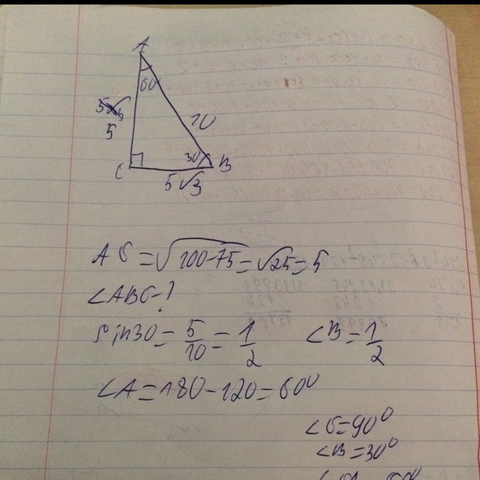 A
60
5
10
C
30
B
5√3
AC=√100-75=√25=5
∠ABC-?
sin30=5/10=1/2 ∠B=1/2
∠A=180-120=60⁰
∠C=90⁰
∠B=30⁰